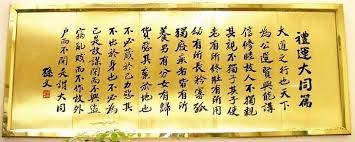 禮運大同篇
大道之行也天下
為公選賢與能講
信修睦故人不獨親
其親不獨子其子使
老有所終壯有所用
幼有所長矜寡孤
獨廢疾者皆有所
養男有分女有歸
貨惡其棄於地也
不必藏於己力惡其
不出於身也不必為
己是故謀閉而不興盜
竊亂賊而不作故外
戶而不閉是謂大同
孫文